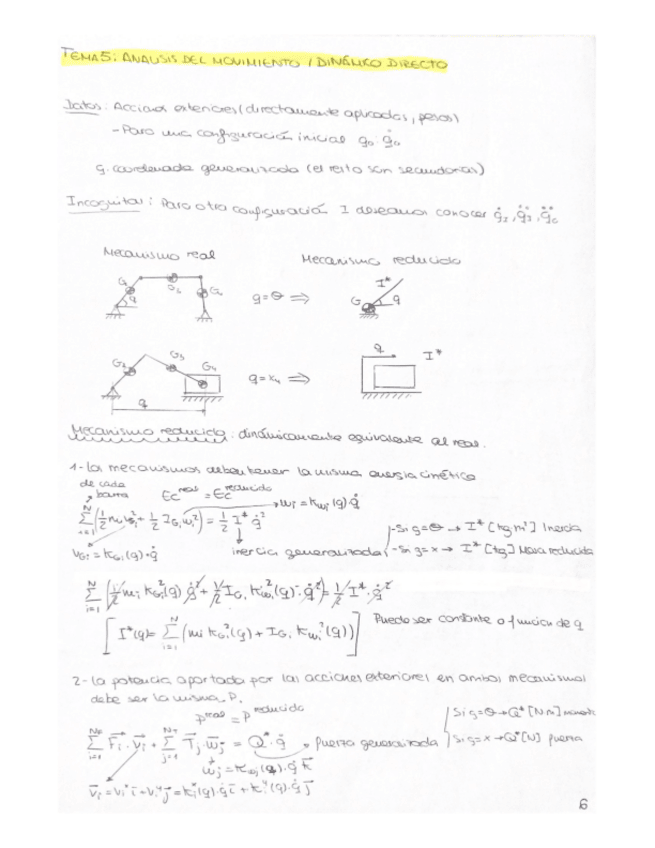 TEMA 5: ANALISIS DEL MOVIMIENTO / DINÁMICO DIRECTO
Datos: Acciones exteriores (directamente aplicadas, pesos)
- Para una configuración inicial q₀ q̇₀
q. coordenada generalizada (el resto son secundarias)
Incognitas: Para otra configuración I deseamos conocer
Mecanismo real Mecanismo reducido
q = θ ⇒
I*
G q
q = x₄ ⇒
G₂ G₃ G₄
q I*
q
Mecanismo reducido: dinámicamente equivalente al real.
1- Los mecanismos deben tener la misma energía cinética
de cada
barra Ec^real = Ec^reducido
ωi = Kωi(q)·q̇
Σ(i=1)^N (1/2 mi vGi² + 1/2 IGi ωi²) = 1/2 I* q̇²
vGi = KGi(q)·q̇
inercia generalizada
- Si q = θ → I* [kg m²] Inercia
- Si q = x → I* [kg] Masa reducida
Σ(i=1)^N (1/2 mi KGi²(q) q̇² + 1/2 IGi Kωi²(q)·q̇²) = 1/2 I*·q̇²
[I*(q) = Σ(i=1)^N (mi KGi²(q) + IGi Kωi²(q))] Puede ser constante o función de q
2- La potencia aportada por las acciones exteriores en ambos mecanismos
debe ser la misma P.
P^real = P^reducido
Si q = θ → Q* [N m] momento
Si q = x → Q* [N] fuerza
Σ(i=1) Fi·vi + Σ(j=1) Tj·ωj = Q*·q̇ → fuerza generalizada
ωj = Kωj(q)·q̇ k
vi = vi^x i + vi^y j = Ki^x(q)·q̇ i + Ki^y(q)·q̇ j
6